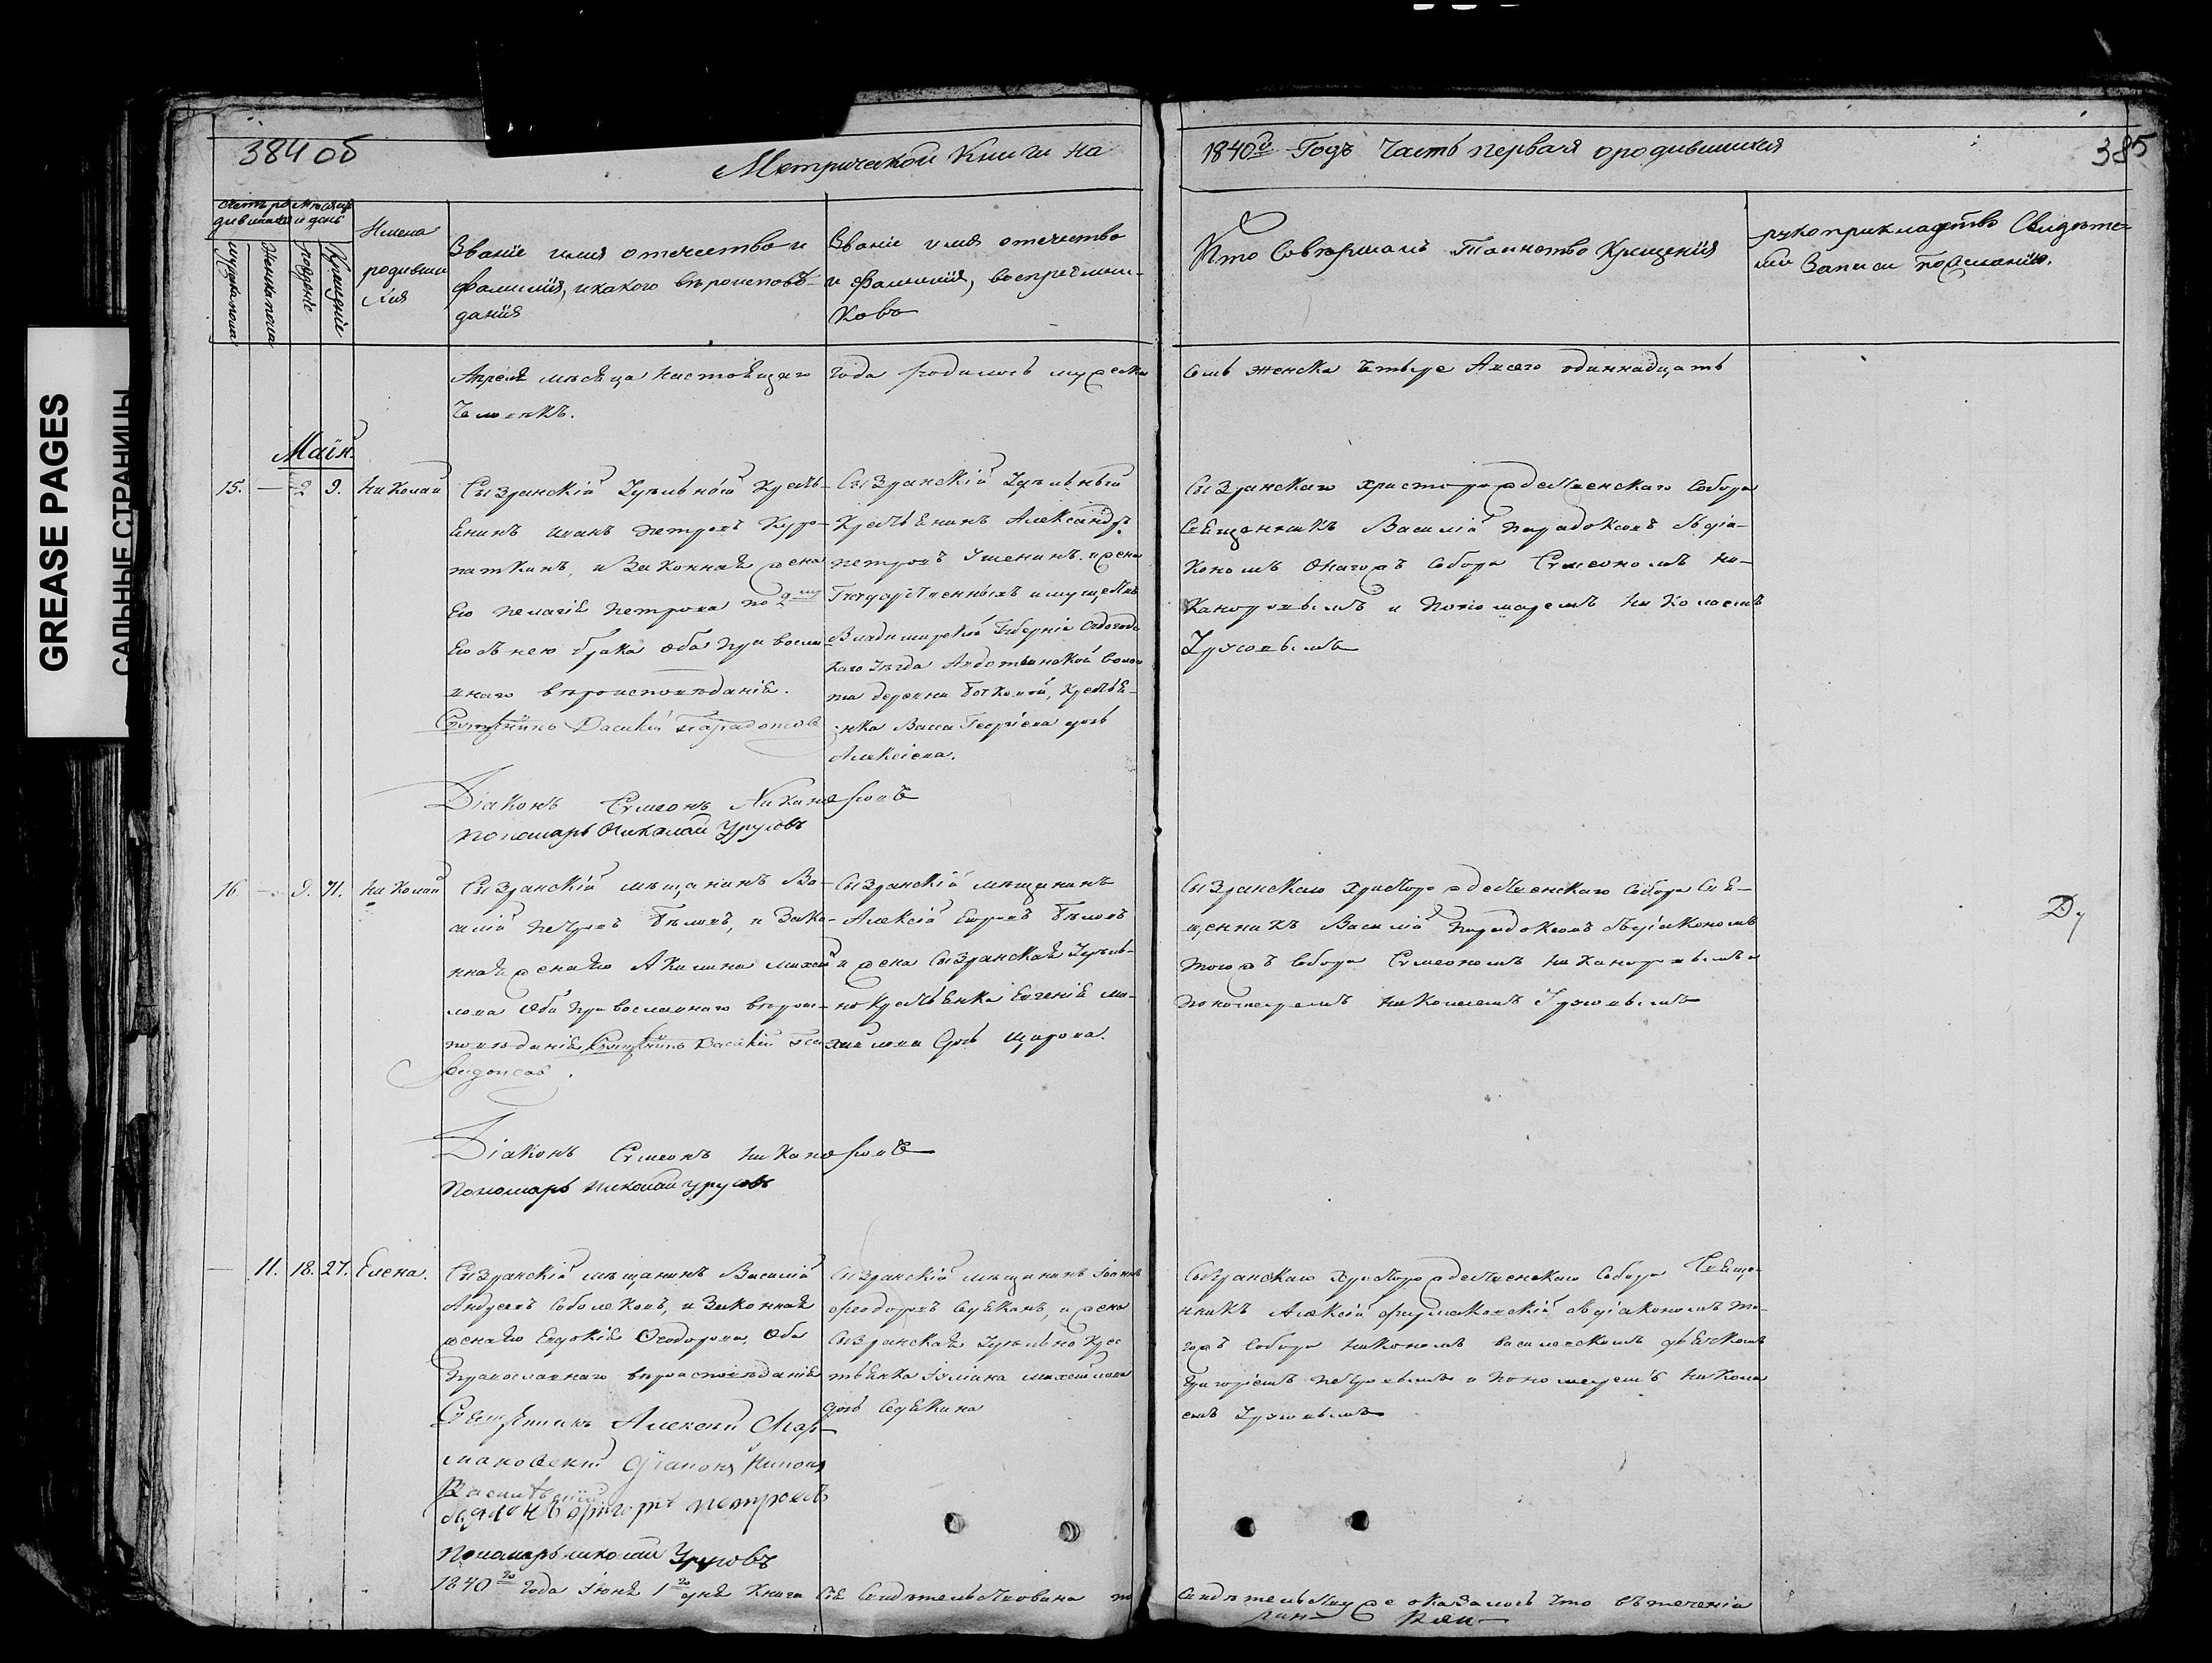 GREASE PAGES
САЛЬНЫЕ СТРАНИЦЫ
384 об
Метрической Книги на
1840й Годъ Часть первая о родившихся
385
Счетъ ро Мѣсяцъ
дившихся и день
мужеска пола
Женска пола
рожденіе
Крещеніе
Имена
родивши
хся
Званіе имя отечество и
фамилія, и какого вѣроисповѣ-
данія
Званіе имя отечество
и фамилія, воспреемни-
ковъ
Кто Совершалъ Таинство Крещенія
рукоприкладство Свидѣте-
лей Записи по желанію.
Апреля мѣсяца настоящаго года родилось мужеска
Семь женска Четыре А всего одиннадцать
Человѣкъ.
Маія.
15. — 2 9. Николай
Сызранскій Удѣльной Кресть-
янинъ Иванъ Петровъ Куро-
паткинъ, и Законная жена
Его Пелагія Петрова по 2му
Его съ нею браку оба Православ-
наго вѣроисповѣданія.
Священникъ Василій Парадоксовъ
Сызранскій Удѣльный
Крестьянинъ Александръ
Петровъ Ушенинъ. и жена
Государственныхъ имуществъ
Владимирской Губерніи Судогод
каго Уѣзда Авдотьинской волос
ти деревни, Крестья-
нка Васса Георгіева дочь
Алексіева.
Сызранскаго Христорождественскаго Собора
Священникъ Василій Парадоксовъ съ діа-
кономъ Онагожъ Собора Симеономъ Ни-
каноровымъ и Пономаремъ Николаемъ
Урусовымъ
Діаконъ Симеонъ Никаноровъ
Пономарь Николай Урусовъ
16 — 9. 11. Николай
Сызранскій мѣщанинъ Ва-
силій Петровъ Бѣловъ, и Зако-
нная жена его Акилина Михай
лова Оба Православнаго вѣроис-
повѣданія Священникъ Василій Па
радоксовъ.
Сызранскій мѣщанинъ
Алексій Егоровъ Бѣловъ
и жена Сызранская Удѣль-
но Крестьянка Евгенія Ми-
хайлова дочь Щарова.
Сызранскаго Христорождественскаго Собора Свя-
щенникъ Василій Парадоксовъ съ діакономъ
тогожъ Собора Симеономъ Никаноровымъ и
Пономаремъ Николаемъ Урусовымъ
Діаконъ Симеонъ Никаноровъ
Пономарь Николай Урусовъ
— 11. 18. 27. Елена.
Сызранскій мѣщанинъ Василій
Андреевъ Соболековъ, и Законная
жена его Евдокія Ѳеодорова, Оба
Православнаго вѣроисповѣданія
Священникъ Алексій Фар-
маковскій Діаконъ Никонъ
Василевскій
Дьячокъ Григорій Петровъ
Пономарь Николай Урусовъ
Сызранскій мѣщанинъ Іоаннъ
Ѳеодоровъ Седякинъ, и жена
Сызранская Удѣльно Крес
тьянка Іуліана Михайлова
дочь Седякина
Сызранскаго Христорождественскаго Собора Свяще-
нникъ Алексій Фармаковскій съ діакономъ то-
гожъ Собора Никономъ Василевскимъ дьячкомъ
Григоріемъ Петровымъ и Пономаремъ Никола
емъ Урусовымъ
1840го Года Іюня 1го дня Книга Сія Свидѣтельствована по
Свидѣтельству же оказалось Что въ теченіи